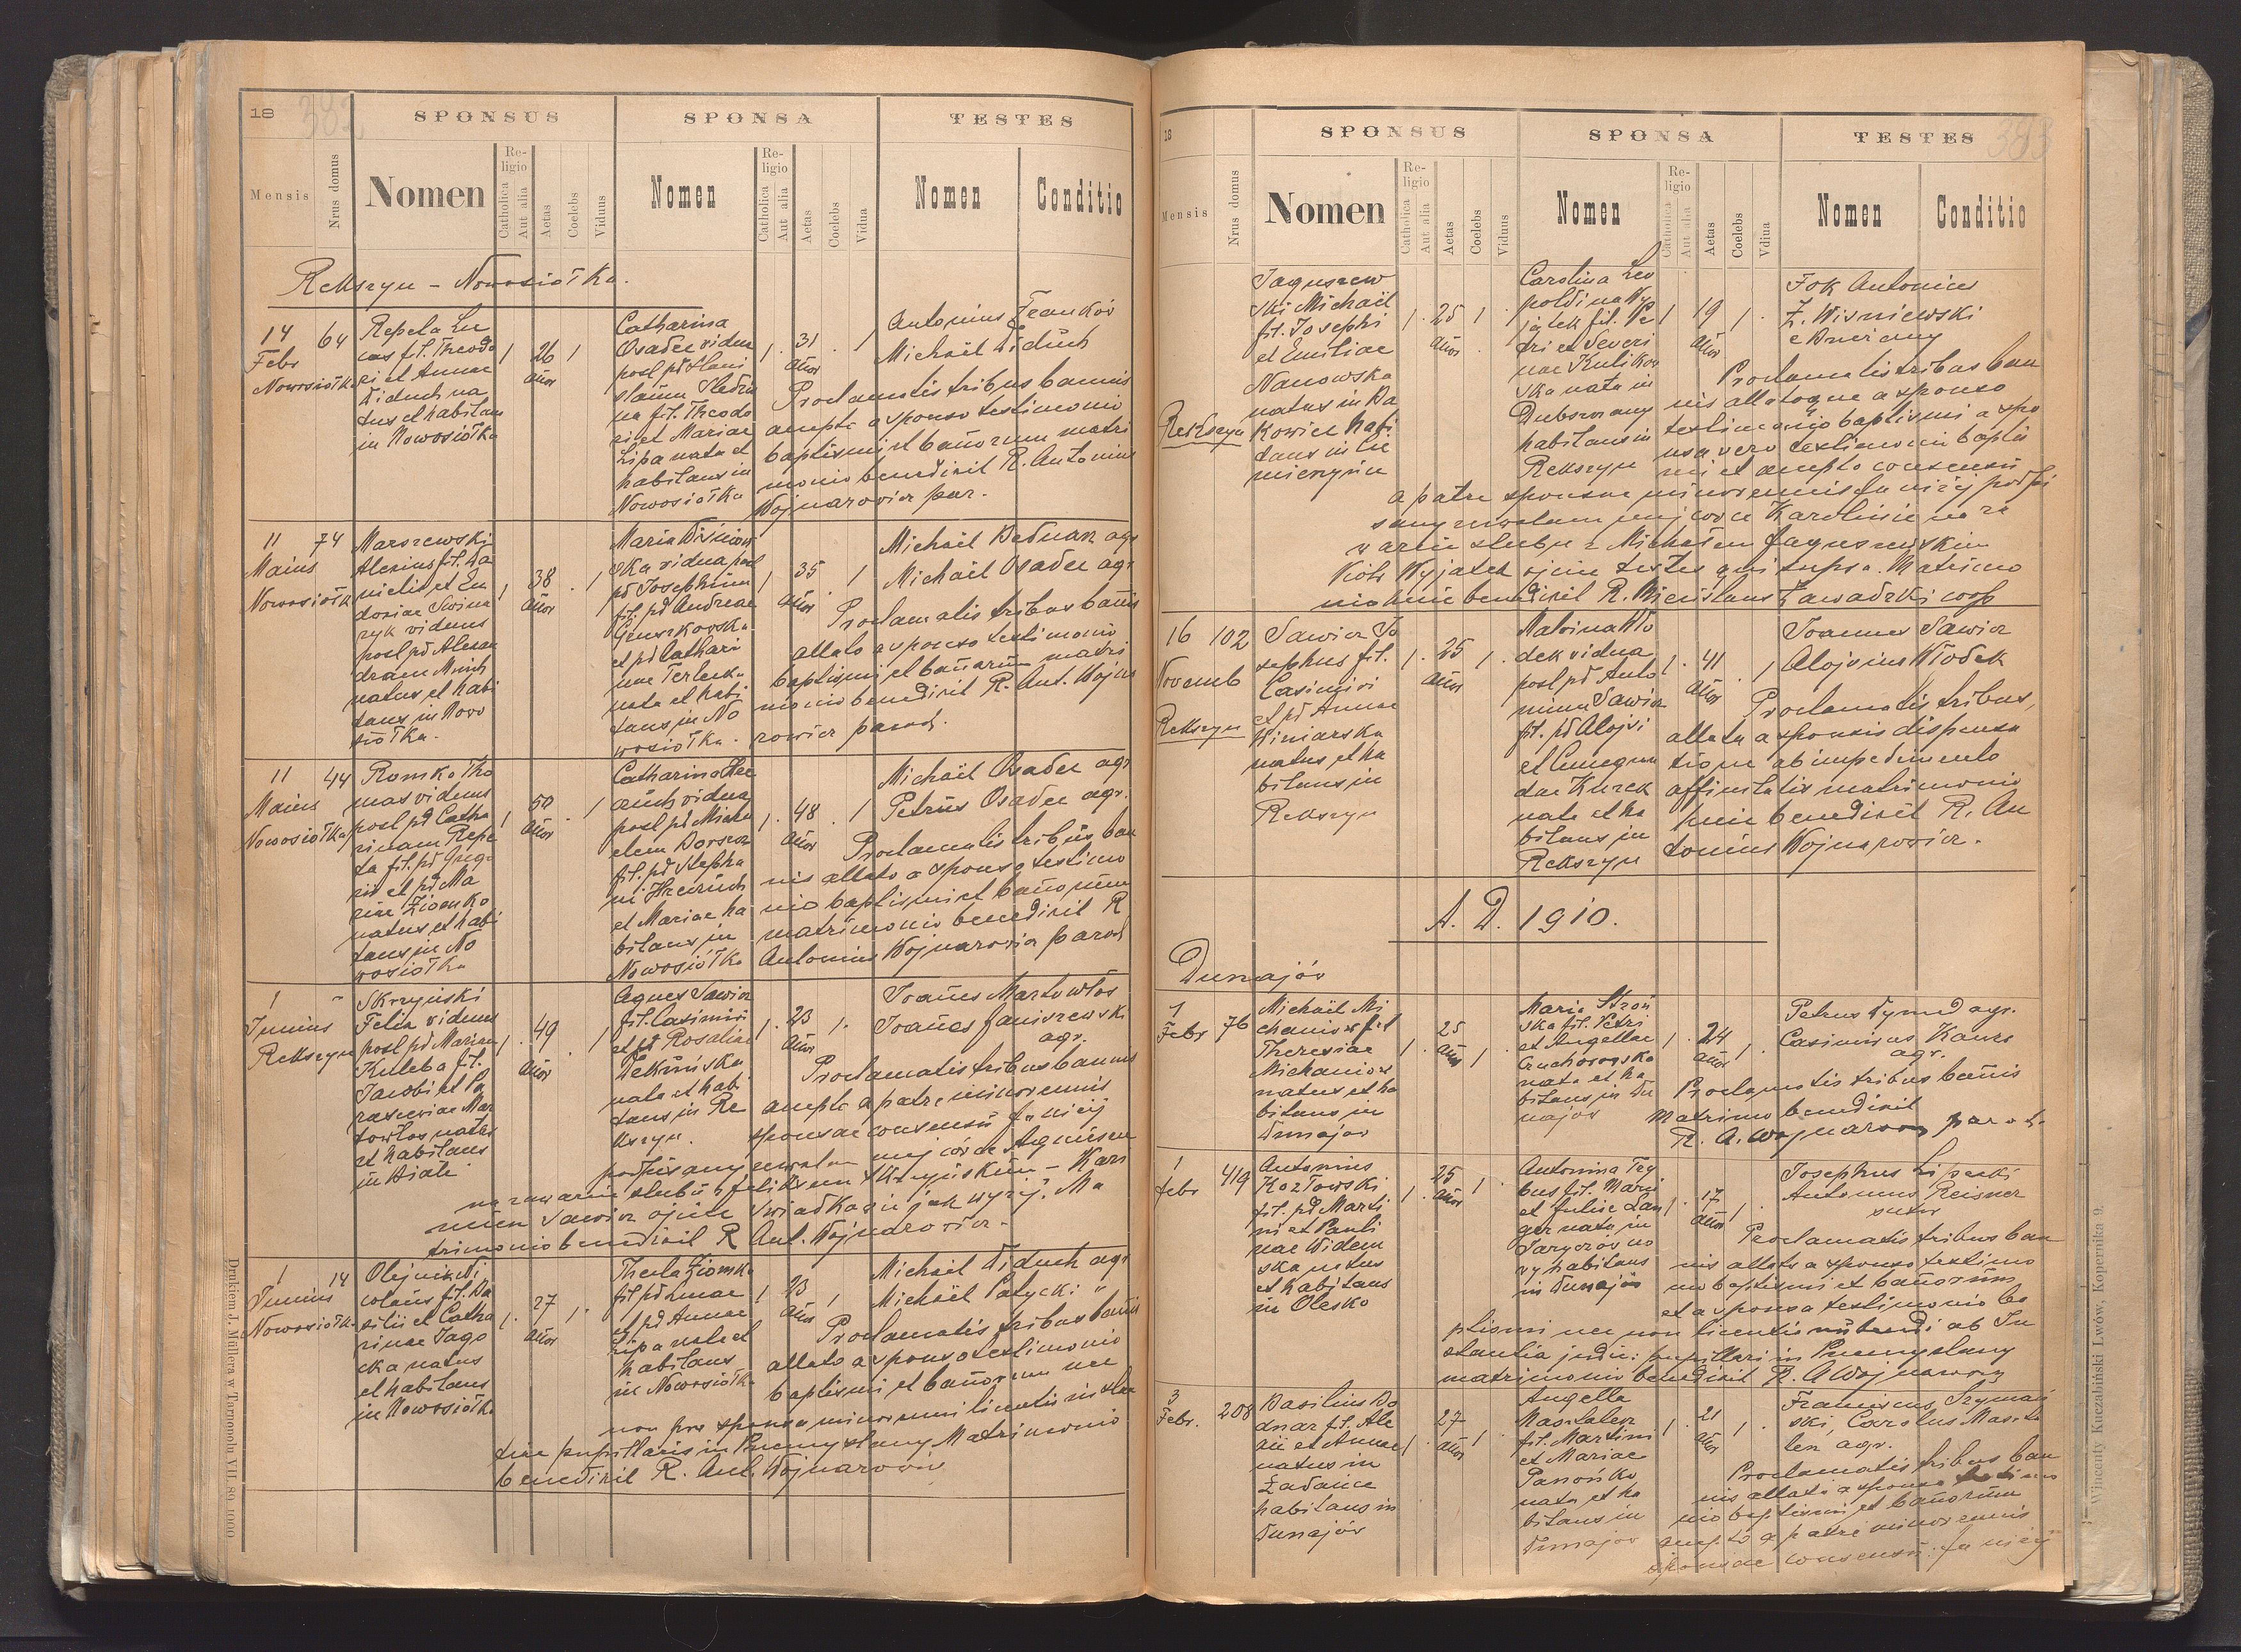 18
SPONSUS SPONSA TESTES
Mensis Nrus domus Nomen Religio Catholica Aut alia Aetas Coelebs Viduus Nomen Religio Catholica Aut alia Aetas Coelebs Vidua Nomen Conditio
Rekszyn – Nowosiółka.
14 Febr Nowosiółka 64
Repeta Lu
cas fil. Theodo
ri et Annae
Diduch na
tus et habitans
in Nowosiółka
1 26 años 1
Catharina
Osadec vidua
post pd Stani
slaum
na fil. Theodo
ri et Mariae
Lipa nata et
habitans in
Nowosiółka
1 . 31 años . 1
Antonius Franków
Michaël Diduch
Proclamatis tribus bannis
accepto a sponso testimonio
baptismi et bañorum matri
monio benedixit R. Antonius
Wojnarowicz par.
11 Maius Nowosiółka 74
Marszewski
Alexius fil. Da
nielis et Eu
doxiae Swina
ryk viduus
post pd Alexan
dram
natus et habi
tans in Nowo
siółka.
1 38 años . 1
Maria Wiśniow
ska vidua post
pd Josephum
fil. pd Andreae
Gruszkowska
et pd Cathari
nae Terlecka
nata et habi
tans in No
wosiółka.
1 35 años 1
Michaël Bednarz agr
Michaël Osadec agr
Proclamatis tribus bañis
allato a sponso testimonio
baptismi et bañorum matri
monio benedixit R. Ant. Wojna
rowicz paroch.
11 Maius Nowosiółka 44
Romko Tho
mas viduus
post pd Catha
rinam Repe
ta fil. pd Grego
rii et pd Ma
riae Ziomko
natus et habi
tans in No
wosiółka
1 50 años . 1
Catharina Hre
vidua
post pd Micha
elem Dorszcz
fil. pd Stepha
ni
et Mariae ha
bitans in
Nowosiółka
1 . 48 años . 1
Michaël Osadec agr
Petrus Osadec agr.
Proclamatis tribus ban
nis allato a sponso testimo
nio baptismi et bañorum
matrimonio benedixit R
Antonius Wojnarowicz paroch
1 Junius Rekszyn "
Skrzyński
Felix viduus
post pd Mariam
Kuleba fil.
Jacobi et Pa
rasceviae Mar
towłos natus
et habitans
in Białe
1 . 49 años . 1
Agnes Sawicz
fil. Casimiri
et pd Rosaliae
Dekuńska
nata et habi
tans in Re
kszyn.
1 . 23 años 1.
Joañes Martowłos
Joañes Janiszewski
agr.
Proclamatis tribus bannis
accepto a patre minorennis
sponsae consensu Ja niżej
podpisany zezwalam mej córce Agnieszce
na zawarcie ślubu z Feliksem Skrzyńskim – Kazi
mierz Sawicz ojciec Świadkowie jak wyżej. Ma
trimonio benedixit R Ant. Wojnarowicz.
1 Junius Nowosiółka 14
Olejnik Ni
colaus fil. Ba
silii et Catha
rinae Jago
cka natus
et habitans
in Nowosiółka
1 . 27 años 1.
Thecla Ziomko
fil pd Lucae
et pd Annae
Lipa nata et
habitans
in Nowosiółka
1 23 años 1
Michaël Diduch agr
Michaël Patycki "
Proclamatis tribus bañis
allato a sponso testimonio
baptismi et bañorum nec
non pro sponsa minorenni licentia instan
tiae pupillaris in Przemyślany Matrimonio
benedixit R. Ant. Wojnarowicz
Drukiem J. Müllera w Tarnopolu VII. 89. 1000
18 383
SPONSUS SPONSA TESTES
Mensis Nrus domus Nomen Religio Catholica Aut alia Aetas Coelebs Viduus Nomen Religio Catholica Aut alia Aetas Coelebs Vdiua Nomen Conditio
Rekszyn
Jaguszew
ski Michaël
fil. Josephi
et Emiliae
Nanowska
natus in Ba
kowice habi
tans in Cie
mierzyńce
1 . 25 años 1 .
Carolina Leo
poldina Wy
jatek fil. Pe
tri et Severi
nae Kulikow
ska nata in
Dubszczany
habitans in
Rekszyn
1 19 años 1 .
Fok Antonius
Z. Wisniewski
Proclamatis tribus ban
nis allatoque a sponso
testimonio baptismi a spo
nsa vero testimonii baptis
mi et accepto consensu
a patre sponsae minorennis Ja niżej podpi
sany zezwalam mej córce Karolinie na za
warcie ślubu z Michałem Jaguszewskim
Piotr Wyjatek ojciec testes qui supra. Matrimo
nio huic benedixit R. Mieczislaus Zawadzki coop
16 Novemb Rekszyn 102
Sawicz Jo
sephus fil.
Casimiri
et pd Annae
Winiarska
natus et ha
bitans in
Rekszyn
1 . 25 años 1 .
Malvina Wło
dek vidua
post pd Anto
nium Sawicz
fil. pd Alojsi
et Cunegun
dae Kurek
nata et ha
bitans in
Rekszyn
1 . 41 años . 1
Joannes Sawicz
Alojsius Włodek
Proclamatis tribus,
allata a sponsis dispensa
tione ab impedimento
affinitatis matrimonio
huic benedixit R. An
tonius Wojnarowicz.
A. D. 1910.
Dunajów
1 Febr 76
Michaël Mi
chaniow fil
Theresiae
Michaniow
natus et ha
bitans in
Dunajow
1 . 25 años 1
Maria Stroń
ska fil. Petri
et Angellae
nata et ha
bitans in Du
najow
1 . 24 años 1 .
Petrus Dymed agr.
Casimirus Kawes
agr.
Proclamatis tribus bañis
Matrimo benedixit
R. A. Wojnarowicz paroch.
1 febr 419
Antonius
Kozłowski
fil. pd Marti
ni et Pauli
nae Widem
ska natus
et habitans
in Olesko
1 . 25 años 1
Antonina Trę
bus fil. Marii
et Juliae Lan
ger nata in
no
wy habitans
in Dunajów
1 . 17 años 1
Josephus Lipecki
Antonius Reisner
sutor
Proclamatis tribus ban
nis allato a sponso testimo
nio baptismi et bañorum
et a sponsa testimonio ba
ptismi nec non licentia nubendi ab In
stantia judic: pupillari in Przemyślany
matrimonio benedixit R. A Wojnarowicz
3 Febr. 208
Basilius Bo
dnar fil. Ale
xii et Annae
natus in
Zadwice
habitans in
Dunajów
1 . 27 años 1
Angella
Masztalerz
fil. Martini
et Mariae
Panońko
nata et ha
bitans in
Dunajow
1 . 21 años 1 .
Franciscus Szymań
ski, Carolus Maszta
lerz agr.
Proclamatis tribus ban
nis allato a sponso testimo
nio baptismi et bañorum
accepto a patre minorennis
sponsae consensu: Ja niżej
Wincenty Kuczabiński Lwów, Kopernika 9.